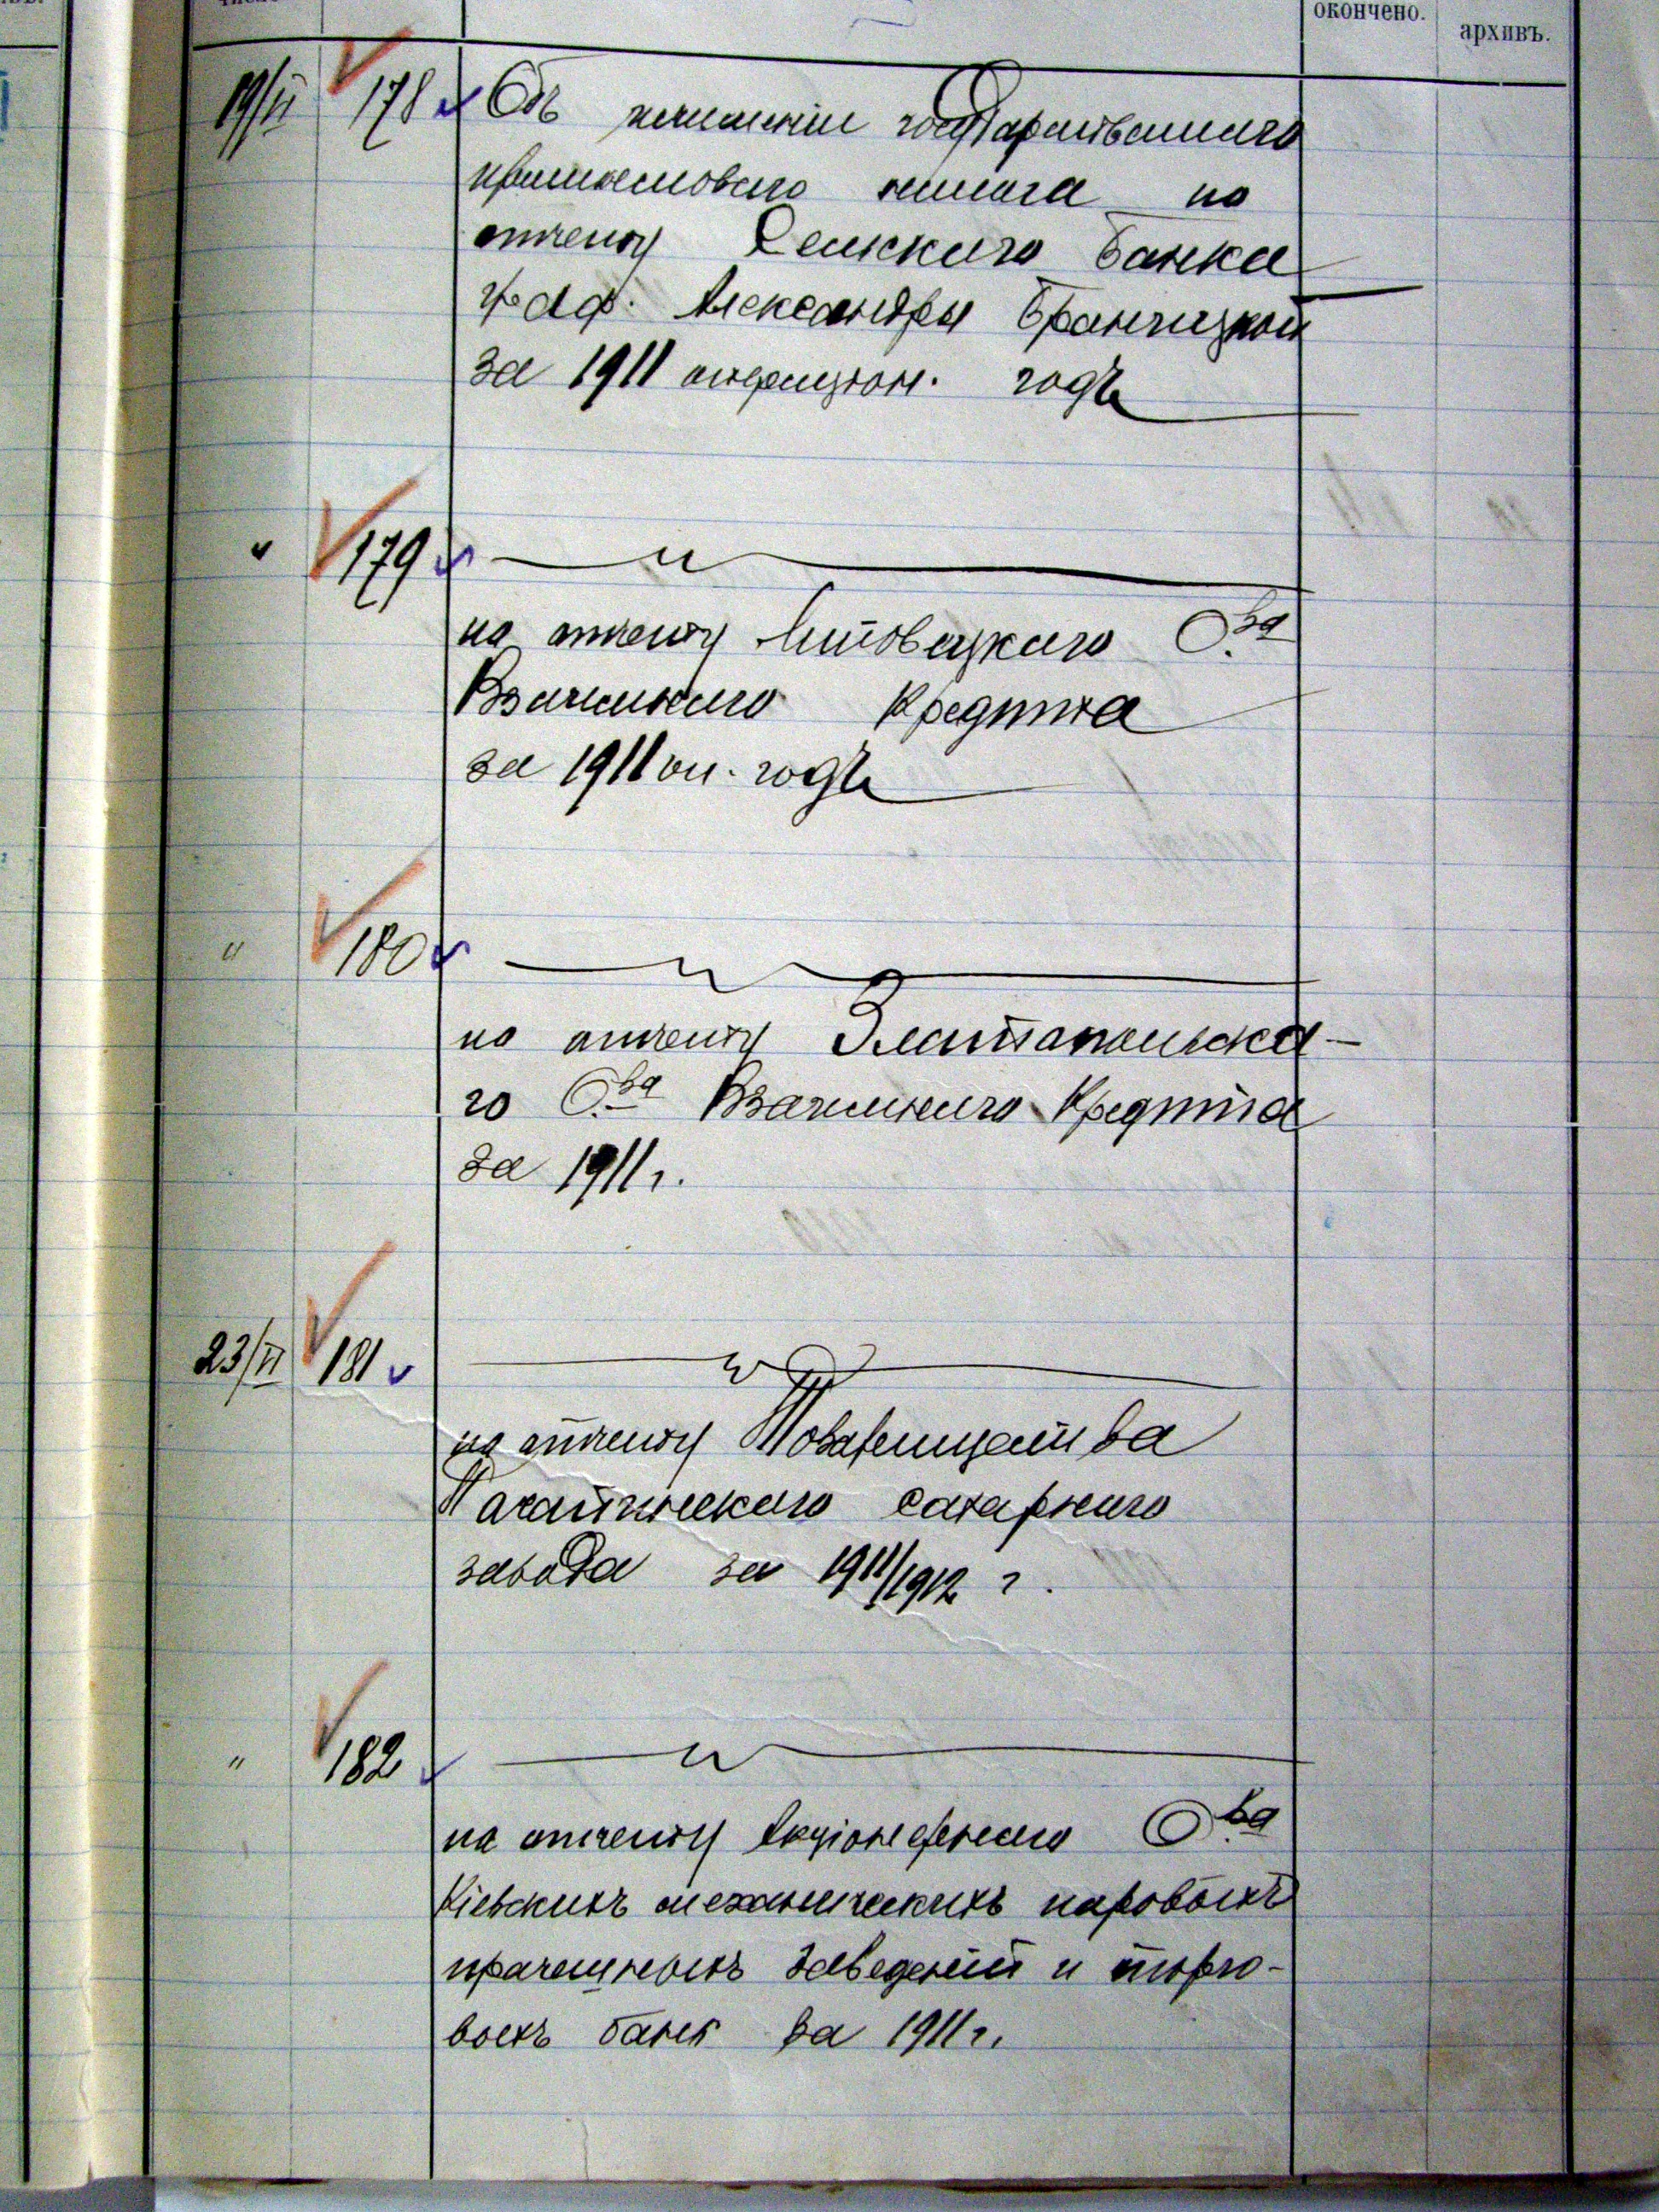 окончено.
архивъ.
19/II 178 Объ исчисленіи государственнаго
промысловаго налога по
отчету Сельскаго Банка
граф. Александры Браницкой
за 1911 операціон. годъ
" 179 — " —
по отчету Липовецкаго О-ва
Взаимнаго Кредита
за 1911 оп. годъ
" 180 — " —
по отчету Златопольска-
го О-ва Взаимнаго Кредита
за 1911 г.
23/II 181 — " —
по отчету Товарищества
сахарнаго
завода за 1911/1912 г.
" 182 — " —
по отчету Акціонернаго О-ва
Кіевскихъ механическихъ паровыхъ
прачешныхъ заведеній и торго-
выхъ бань за 1911 г.